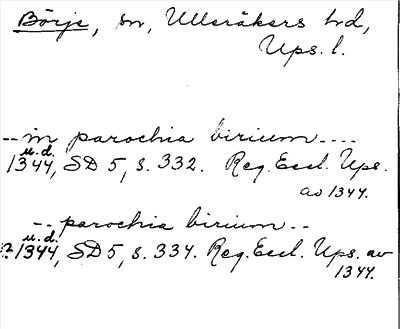 Börje, sn, Ulleråkers hd,
Ups. l.
-- in parochia birium ----
u.d.
1344, SD 5, s. 332. Reg. Eccl. Ups.
av 1344.
-- parochia birium --
u.d.
?1344, SD 5, s. 334. Reg. Eccl. Ups. av
1344.